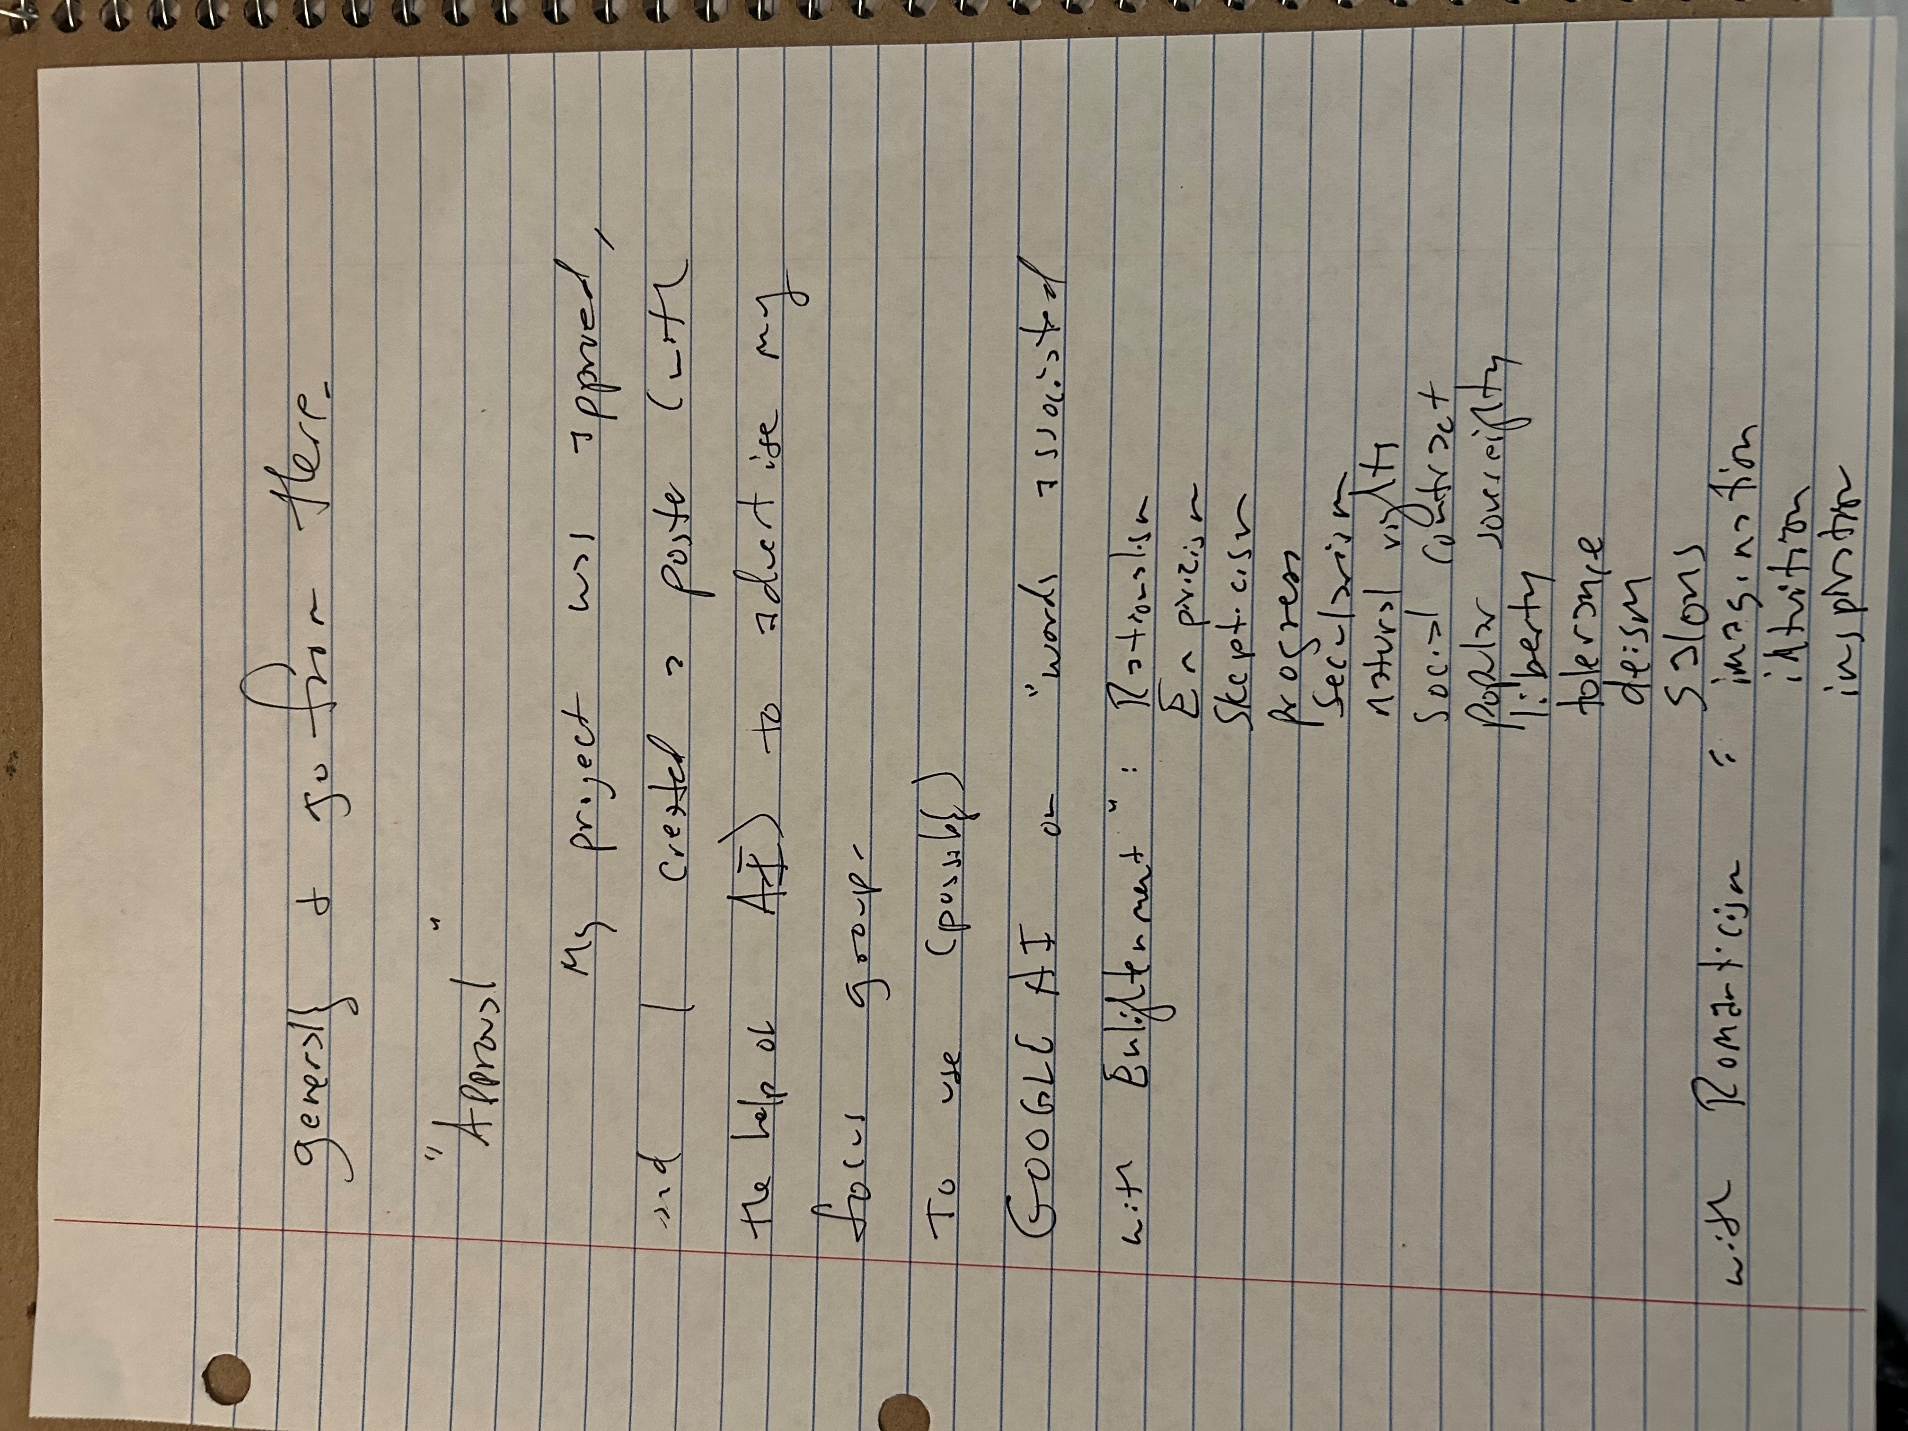 generally & go from there.
"Approval"
My project was approved,
and I created a poste (with
the help of AI) to advertise my
focus group.
To use (possibly)
GOOGLE AI on "words associated
with Enlightenment": Rationalism
Empiricism
Skepticism
progress
Secularism
natural rights
Social contract
Poplar sovereignty
liberty
tolerance
deism
Salons
with Romanticism: imagination
intuition
inspiration